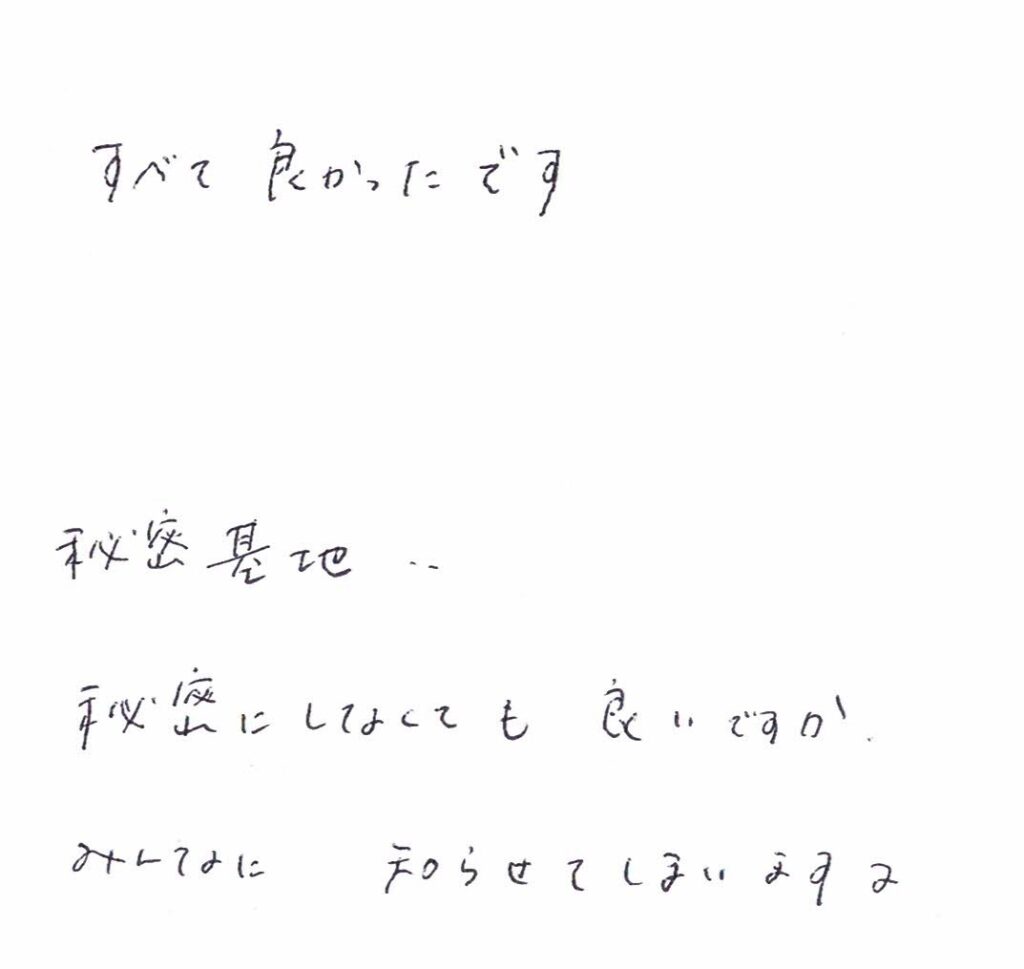 すべて 良かったです
秘密基地 ‥
秘密にしなくても 良いですか.
みんなに 知らせてしまいますヨ